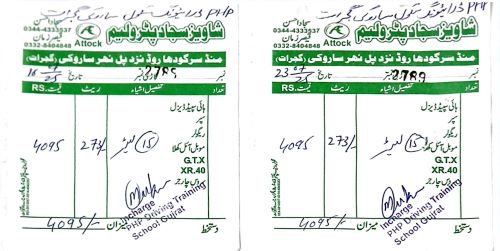 PHP ڈرائیونگ سکول ساروکی گجرات
شاویز سجاد پٹرولیم
سجاد احسن
0344-4333537
قیصر زمان
0332-8404848
Attock
منڈ سرگودھا روڈ نزد پل نهر ساروکی (گجرات)
نمبر 2789 تاریخ 16-07-25
تعداد تفصیل اشیاء ریٹ قیمت RS.
ہائی سپیڈ ڈیزل
سپر
ریگولر
15 لیٹر 273/- 4095
موبل آئل کھلا
G.T.X
XR.40
سروس چارجز
Incharge
PHP Driving Training
School Gujrat
دستخط میزان 4095/-
PHP ڈرائیونگ سکول ساروکی گجرات
شاویز سجاد پٹرولیم
سجاد احسن
0344-4333537
قیصر زمان
0332-8404848
Attock
منڈ سرگودھا روڈ نزد پل نهر ساروکی (گجرات)
نمبر 2789 تاریخ 23-07-25
تعداد تفصیل اشیاء ریٹ قیمت RS.
ہائی سپیڈ ڈیزل
سپر
ریگولر
15 لیٹر 273/- 4095
موبل آئل کھلا
G.T.X
XR.40
سروس چارجز
Incharge
PHP Driving Training
School Gujrat
دستخط میزان 4095/-